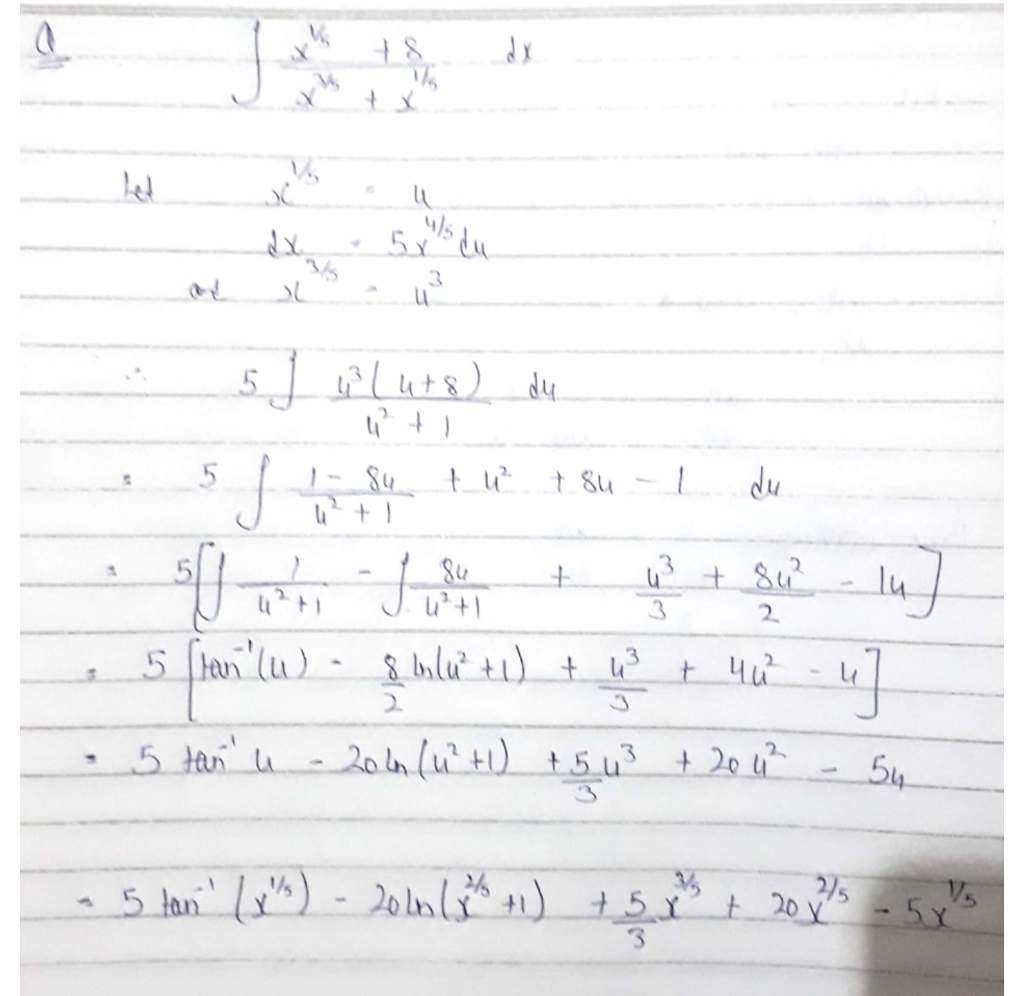 Q ∫ (x^{1/5} + 8)/(x^{3/5} + x^{1/5}) dx
Let x^{1/5} = u
dx = 5x^{4/5} du
and x^{3/5} = u^3
∴ 5∫ u^3(u+8)/(u^2 + 1) du
= 5 ∫ (1 - 8u)/(u^2 + 1) + u^2 + 8u - 1 du
= 5[∫ 1/(u^2+1) - ∫ 8u/(u^2+1) + u^3/3 + 8u^2/2 - 1u]
= 5 [tan^{-1}(u) - 8/2 ln(u^2+1) + u^3/3 + 4u^2 - u]
= 5 tan^{-1} u - 20 ln(u^2+1) + 5/3 u^3 + 20 u^2 - 5u
= 5 tan^{-1} (x^{1/5}) - 20 ln(x^{2/5} +1) + 5/3 x^{3/5} + 20x^{2/5} - 5x^{1/5}